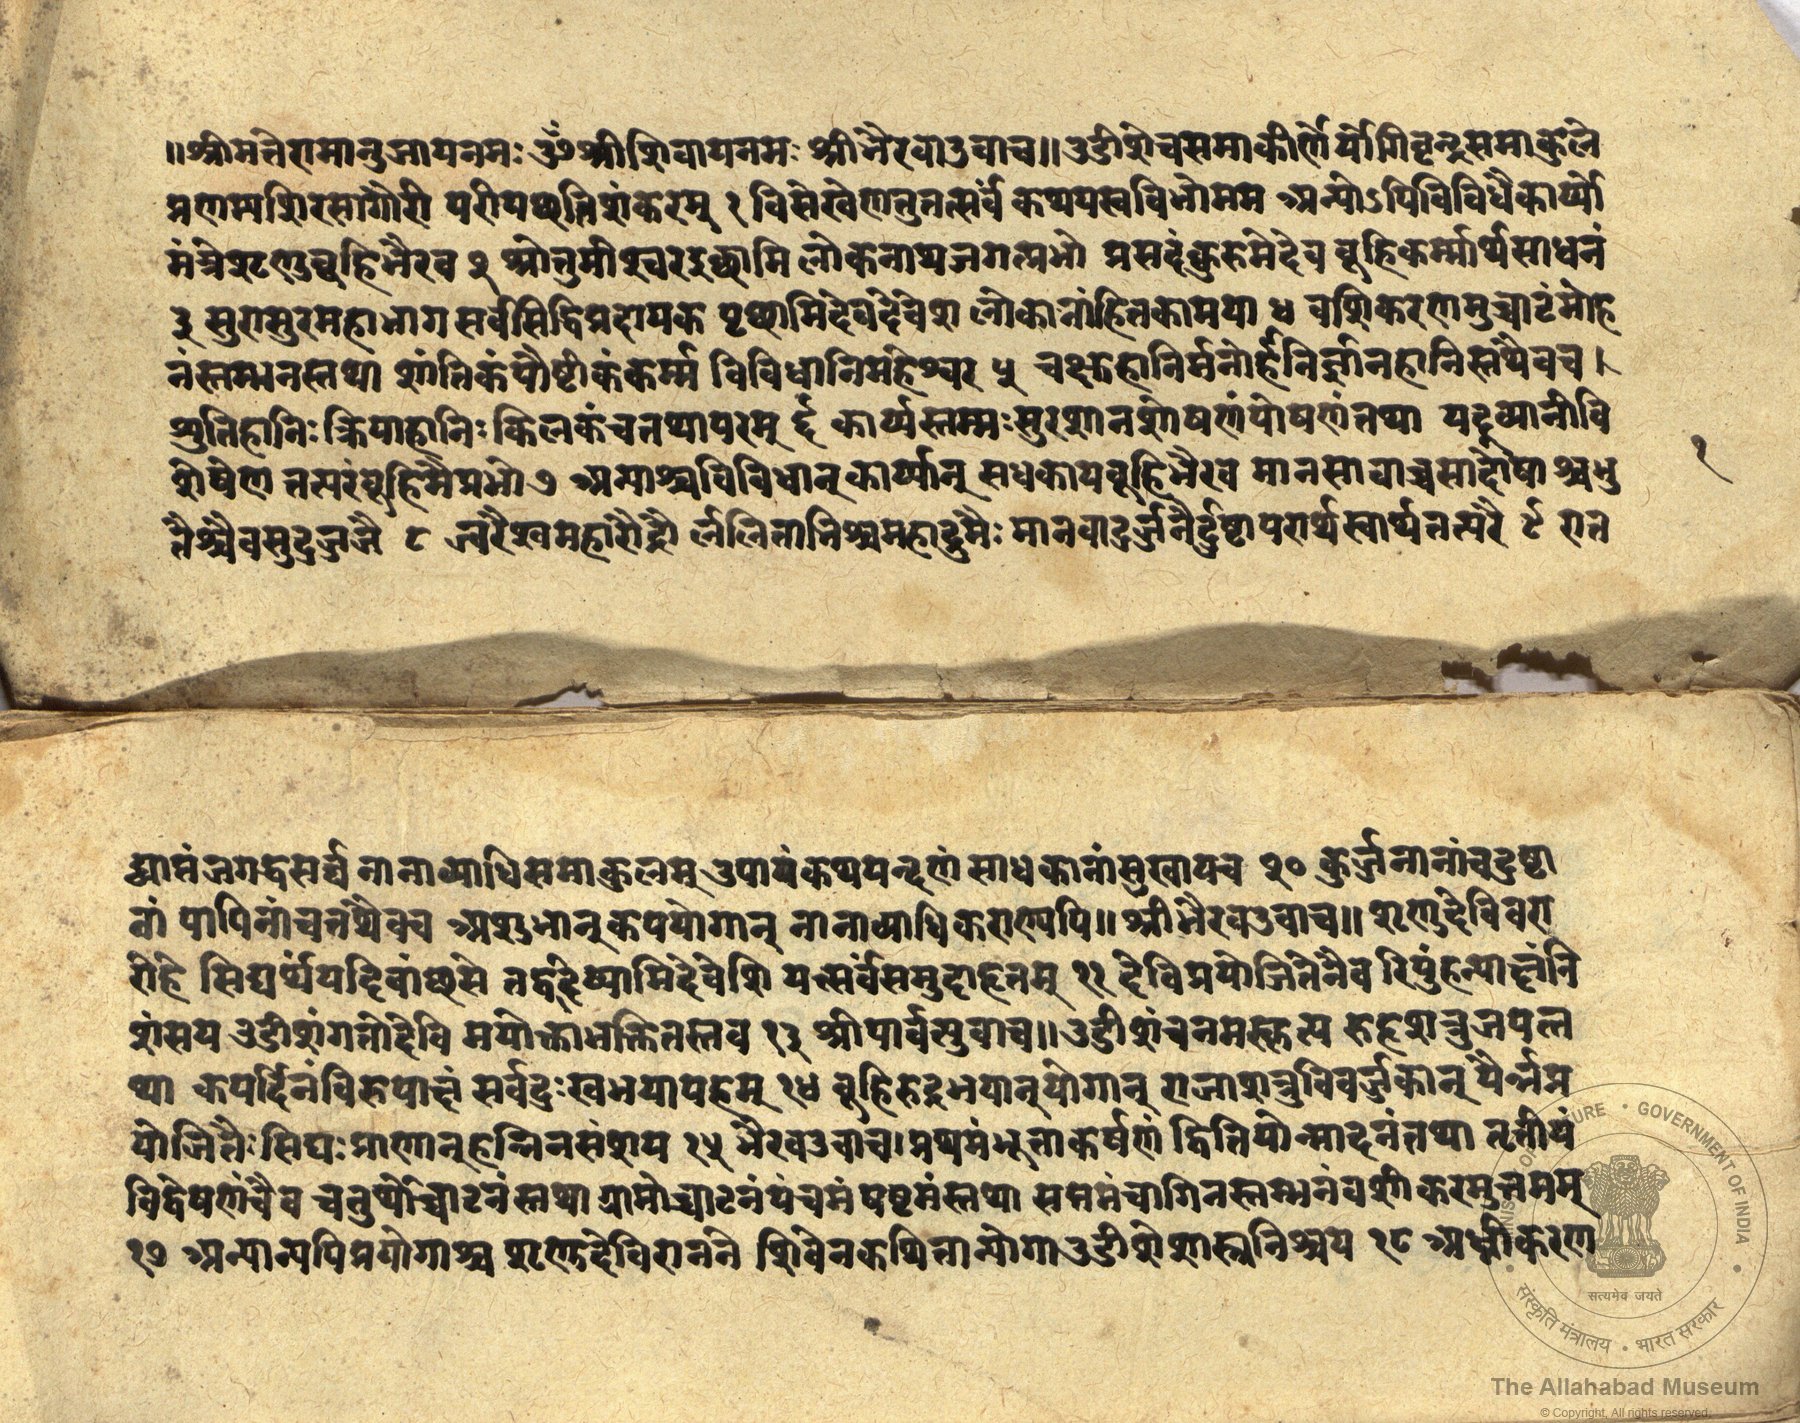 ॥श्रीमतेरामानुजायनमः ॐश्रीशिवायनमः श्रीभैरवाउवाच॥उडीशेचसमाकीर्णेयोगिवृन्दसमाकुले
प्रणम्यशिरसागौरी परीपृछतिशंकरम् १ विसेखेणतुतत्सर्वं कथयस्वविभोमम अन्योऽपिविविधैकार्य्यो
मंत्रेशृणुब्रुहिभैरव २ श्रोतुमीश्वरइछामि लोकनाथजगत्प्रभो प्रसदंकुरुमेदेव ब्रूहिकर्म्मार्थसाधनं
३ सुरासुरमहाभाग सर्वसिद्धिप्रदायक पृछामिदेवदेवेश लोकानांहितकामया ४ वशिकरणमुच्चाटंमोह
नंस्तम्भनस्तथा शांतिकंपौष्टीकंकर्म्म विविधानिमहेश्वर ५ चक्षुहानिर्मनोर्हनिर्ज्ञानहानिस्तथैवच।
श्रुतिहानिः क्रियाहानिः किलकंचतथापरम् ६ कार्य्यस्तम्भःसुरशानशोषणंपोषणंतथा यद्द्व्यानीवि
शेषेण तत्सरंब्रुहिमैप्रभो ७ अन्याश्चविविधान्कार्य्यान् सधकायब्रूहिभैरव मानसावाच्चसादोषा श्चधु
तैश्चैवसुदुर्ज्जजै ८ ज्वरैश्खमहारौद्रौ र्ललितानिश्चमहाद्रुमैः मानवादुर्ज्जनैर्दुष्टापरार्थस्वार्थतत्परै ९ रात
१
द्याप्तंजगद्वसर्व्वं नानाव्याधिसमाकुलम् उपायंकथयन्दृणं साधकानांसुखायच १० कुर्ज्जनानांचदुष्टा
नां पापिनांचतथैवच अशुभान्कथयोगान् नानाव्याधिकराण्यपि॥ श्रीभैरवउवाच॥ शृणुदेविवरा
रोहे सिद्यर्थंयदिवांछसे तद्वदेष्यामिदेवेशि यत्सर्वंसमुदाहृतम् ११ देविप्रयोजितेनैव रिपुंहन्यात्नंनि
शंसय उडीशंगतोदेवि मयोक्ताभक्तितस्तव १३ श्रीपार्वत्युवाच॥उडीशंचनमस्कृत्य रुद्रशत्रुजयत्त
था कपर्दिनंविरुपात्तं सर्वदुःखभयापहम् १४ ब्रूहिरुद्रभयान्योगान् राजाशत्रुविवर्ज्जकान् यैर्न्नप्र
योजितैः सिद्यःप्राणान्हन्तिनसंशय १५ भैरवउवाच।प्रथमंभूताकर्षणं द्वितियोन्मादनंतथा तृतीयं
विद्वेषणंचैव चतुर्थोच्चाटनंस्तथा ग्रामोच्चाटनंपंचमं षष्टमंस्तथा सप्तमंचाग्निस्तम्भनंवशीकरमुत्तमम्
१७ अन्यान्यपिप्रयोगाश्च शृणुदेविराननने शिवेनकथितान्योगाउडीशेशास्त्रनिश्चय १८ अन्धीकरण
MINISTRY OF CULTURE • GOVERNMENT OF INDIA
सत्यमेव जयते
संस्कृति मंत्रालय • भारत सरकार
The Allahabad Museum
© Copyright, All rights reserved.